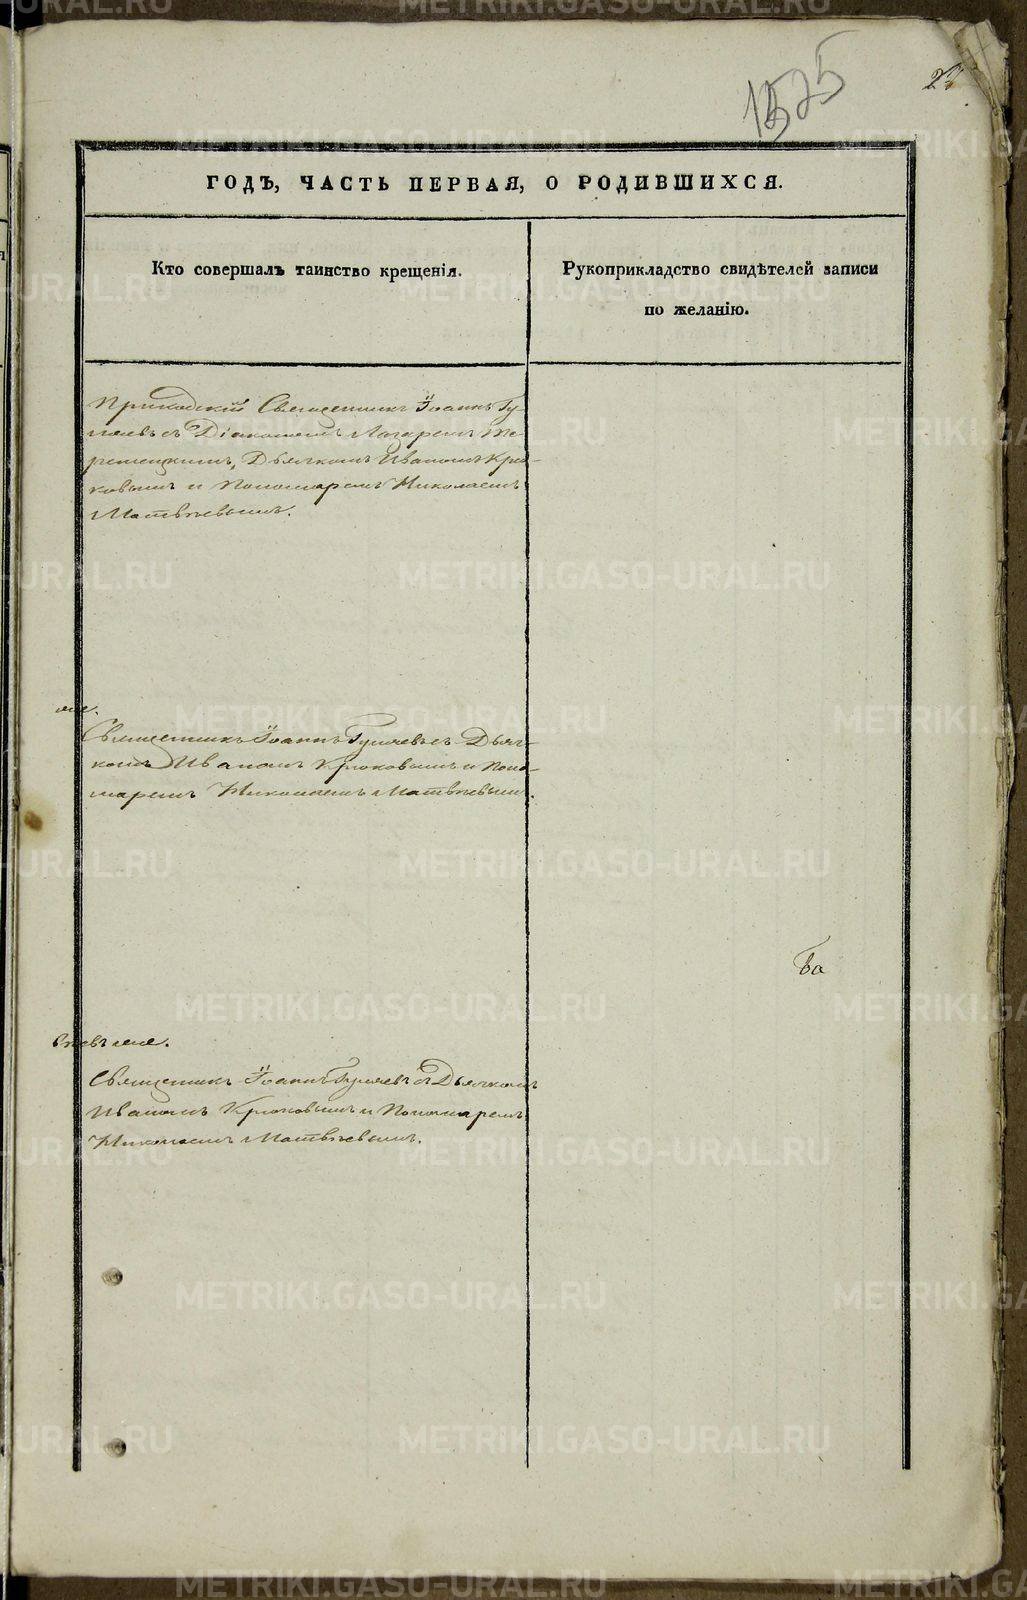 23
ГОДЪ, ЧАСТЬ ПЕРВАЯ, О РОДИВШИХСЯ.
Кто совершалъ таинство крещенія.
Рукоприкладство свидѣтелей записи
по желанію.
Приходскій Священникъ Іоаннъ Гу-
ляевъ съ Діакономъ Лазаремъ
Дьячкомъ Иваномъ Крю-
ковымъ и Пономаремъ Николаемъ
Матвѣевымъ.
Священникъ Іоаннъ Гуляевъ съ Дьяч-
комъ Иваномъ Крюковымъ и Поно-
маремъ Николаемъ Матвѣевым.
Священникъ Іоаннъ Гуляевъ съ Дьячкомъ
Иваномъ Крюковымъ и Пономаремъ
Николаемъ Матвѣевымъ.
METRIKI.GASO-URAL.RU